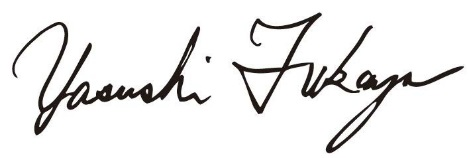 Yasushi Fukaya